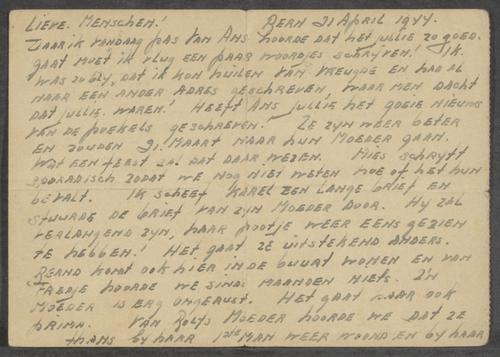 LIEVE MENSCHEN! BERN 21 APRIL 1944.
DAAR IK VANDAAG PAS VAN ANS HOORDE DAT HET JULLIE ZO GOED
GAAT MOET IK VLUG EEN PAAR WOORDJES SCHRIJVEN! IK
WAS ZO BLY, DAT IK KON HUILEN VAN VREUGDE EN HAD AL
NAAR EEN ANDER ADRES GESCHREVEN, WAAR MEN DACHT
DAT JULLIE WAREN! HEEFT ANS JULLIE HET GOEIE NIEUWS
VAN DE POEKELS GESCHREVEN! ZE ZYN WEER BETER
EN ZOUDEN 21. MAART NAAR HUN MOEDER GAAN.
WAT EEN FEEST ZAL DAT DAAR WEZEN. MIES SCHRYFT
SPORADISCH ZODAT WE NOG NIET WETEN HOE OF HET HUN
BEVALT. IK SCHEEF KAREL EEN LANGE BRIEF EN
STUURDE DE BRIEF VAN ZYN MOEDER DOOR. HY ZAL
VERLANGEND ZYN, HAAR POOTJE WEER EENS GEZIEN
TE HEBBEN! HET GAAT ZE UITSTEKEND ANDERS.
KOMT OOK HIER IN DE BUURT WONEN EN VAN
HOORDE WE SINDS MAANDEN NIETS. Z'N
MOEDER IS ERG ONGERUST. HET GAAT HAAR OOK
PRIMA. VAN MOEDER HOORDE WE DAT ZE
THANS BY HAAR 1STE MAN WEER WOOND EN BY HAAR